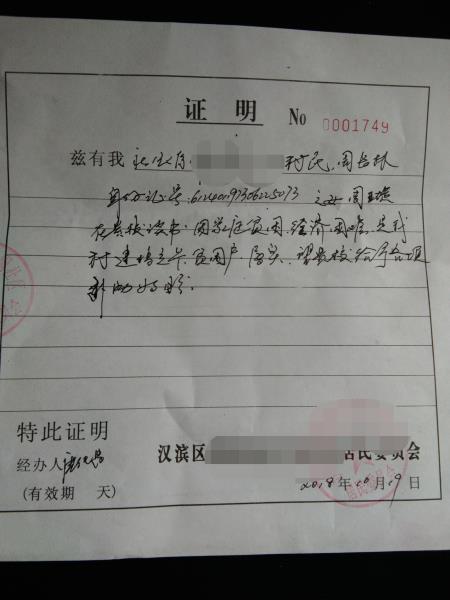 证 明
No 0001749
兹有我 村民,周长林
身份证号:612401197306225073 之女 周
在贵校读书,因家庭贫困,经济困难,是我
村建档立卡贫困户属实,望贵校给予合理
特此证明
经办人
汉滨区 居民委员会
(有效期 天)
2018年10月19日